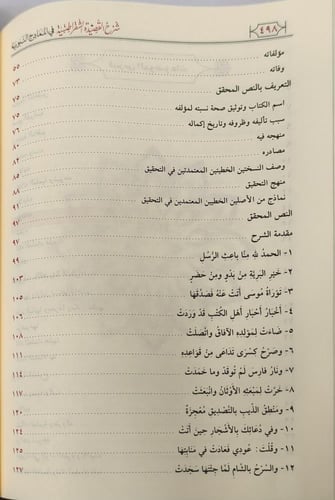 ٤٩٨ شرح القصيدة الشقراطيسية في المدائح النبوية
مؤلفاته ٥٥
وفاته ٧٣
التعريف بالنص المحقق ٧٥
اسم الكتاب وتوثيق صحة نسبته لمؤلفه ٧٥
سبب تأليفه وظروفه وتاريخ إكماله ٧٦
منهجه فيه ٨٠
مصادره ٨٢
وصف النسختين الخطيتين المعتمدتين في التحقيق ٨٥
منهج التحقيق ٨٨
نماذج من الأصلين الخطيين المعتمدين في التحقيق ٩١
النص المحقق ٩٧
مقدمة الشرح ٩٧
١- الحمدُ لله مِنَّا باعثِ الرُّسُلِ ٩٩
٢- خَيْرِ البَرِيَّةِ مِنْ بَدْوٍ ومِنْ حَضَرٍ ١٠٣
٣- تَوْرَاةُ مُوسَى أَتَتْ عَنْهُ فَصَدَّقَهَا ١٠٥
٤- أَخْبَارُ أَحْبَارِ أَهْلِ الكُتْبِ قَدْ وَرَدَتْ ١٠٦
٥- ضَاءَتْ لِمَوْلِدِهِ الآفَاقُ واتَّصَلَتْ ١٠٨
٦- وصَرْحُ كِسْرَى تَدَاعَى مِنْ قَوَاعِدِهِ ١١١
٧- ونَارُ فَارِسَ لَمْ تُوقَدْ ومَا خَمَدَتْ ١١٤
٨- خَرَّتْ لِمَبْعَثِهِ الأَوْثَانُ وانْبَعَثَتْ ١١٧
٩- ومَنْطِقُ الذِّيبِ بِالتَّصْدِيقِ مُعْجِزَةٌ ١٢٠
١٠- وفِي دُعَائِكَ بِالأَشْجَارِ حِينَ أَتَتْ ١٢٤
١١- وقُلْتَ: عُودِي فَعَادَتْ فِي مَنَابِتِهَا ١٢٥
١٢- والسَّرْحُ بِالشَّامِ لَمَّا جِئْتَهَا سَجَدَتْ ١٢٧